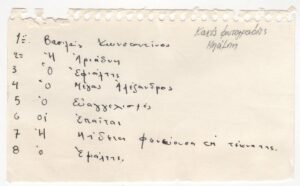 Κακές φωτογραφίες
1. Βασιλεύς Κωνσταντίνος
2 Ἡ Ἀριάδνη
3 Ὁ Ἐφιάλτης
4 Ὁ Μέγας Ἀλέξανδρος
5 Ὁ Εὐαγγελισμός
6 Οἱ Ἐπαῖται
7 Ἡ Μήδεια φονεύουσα τὰ τέκνα της.
8 Ὁ Ἐφιάλτης